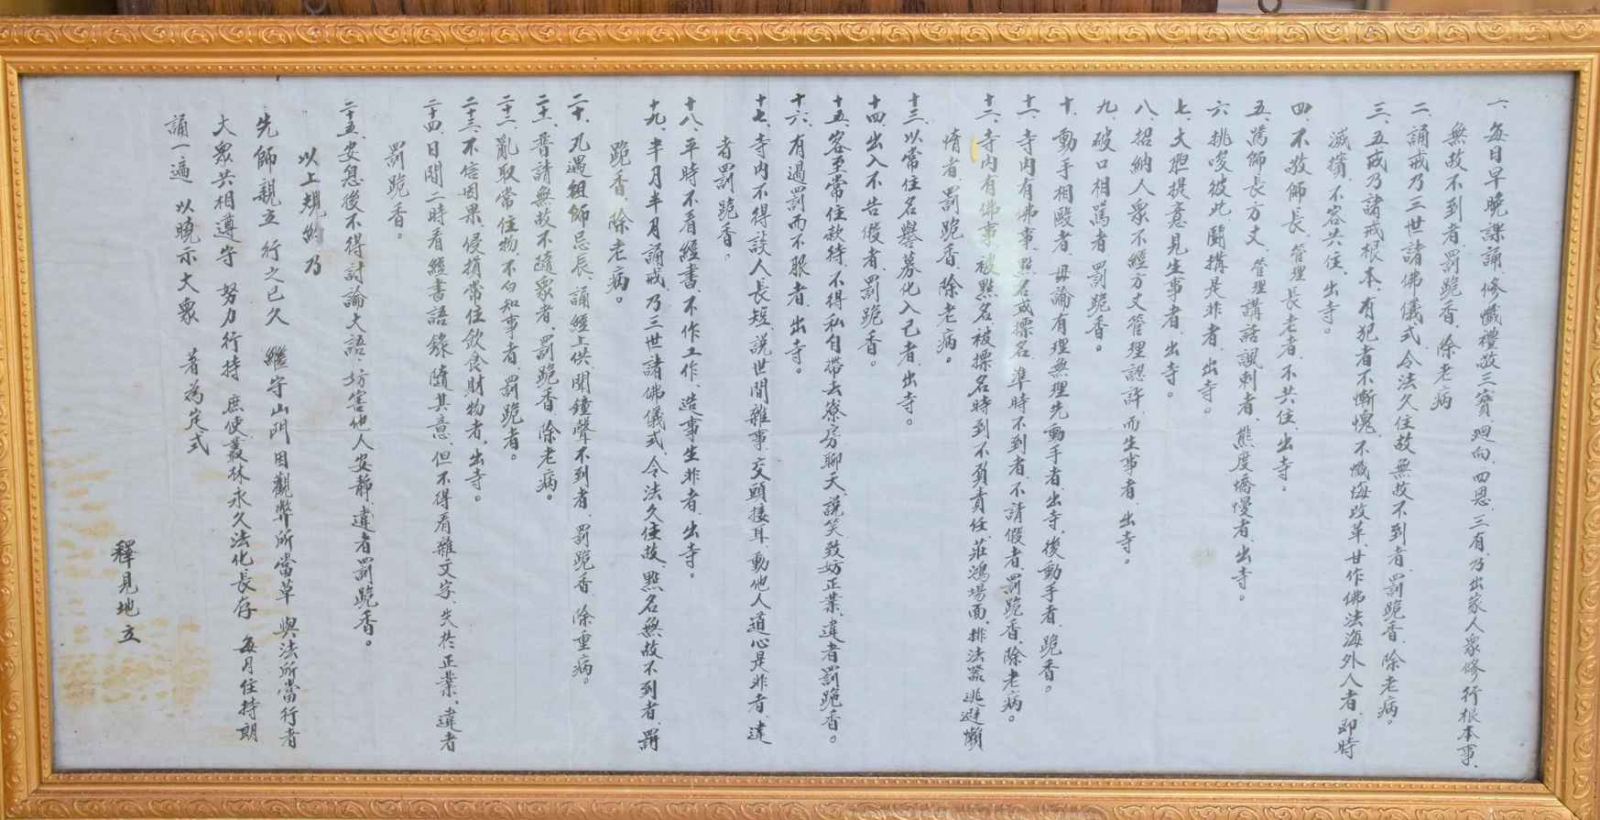 一、每日早晚課誦、修懺禮敬三寶、迴向、四恩、三有、乃出家人衆修行根本事、
無故不到者、罰跪香、除老病
二、誦戒乃三世諸佛儀式、令法久住故、無故不到者、罰跪香、除老病。
三、五戒乃諸戒根本、有犯者不慚愧、不懺悔改革甘作佛法海外人者、即時
滅擯、不容共住、出寺。
四、不敬師長、管理長老者、不共住、出寺。
五、罵師長方丈、管理講話諷刺者、態度憍慢者、出寺。
六、挑唆彼此鬪搆是非者、出寺。
七、大胆提意見生事者、出寺。
八、招納人衆不經方丈管理認許而生事者、出寺。
九、破口相罵者、罰跪香。
十、動手相毆者、毋論有理無理先動手者、出寺、後動手者、跪香。
十一、寺内有佛事、點名或標名準時不到者、不請假者、罰跪香、除老病。
十二、寺内有佛事、被點名被標名時到不負責任莊鴻場面、排法器逃避懶
惰者、罰跪香、除老病。
十三、以常住名譽募化入己者、出寺。
十四、出入不告假者、罰跪香。
十五、客至常住款待、不得私自帶去寮房聊天、說笑致妨正業、違者罰跪香。
十六、有過罰而不服者、出寺。
十七、寺内不得談人長短、說世間雜事、交頭接耳、動他人道心是非者、違
者罰跪香。
十八、平時不看經書、不作工作、造事生非者、出寺。
十九、半月半月誦戒、乃三世諸佛儀式、令法久住故、點名無故不到者、罰
跪香、除老病。
二十、凡遇祖師忌辰、誦經上供、聞鐘聲不到者、罰跪香、除重病。
二十一、普請無故不隨衆者、罰跪香、除老病。
二十二、亂取常住物、不白知事者、罰跪者。
二十三、不信因果、侵損常住飲食財物者、出寺。
二十四、日間二時看經書語錄、隨其意、但不得看雜文字、失於正業、違者
罰跪香。
二十五、安息後不得討論大語、坊害他人安靜、違者罰跪香。
以上規約乃
先師親立 行之已久 繼守山門 因觀弊所當革 與法所當行者
大衆共相遵守 努力行持 庶使叢林永久法化長存 每月住持期
誦一遍 以曉示大衆 著為定式
釋見地立